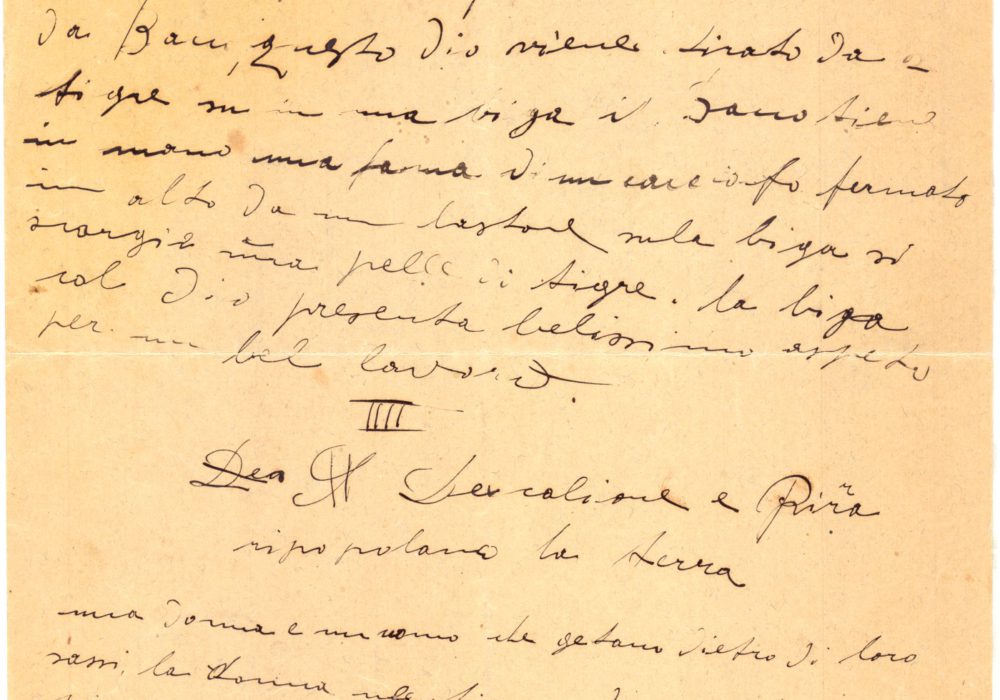 da Baco, questo dio viene tirato da
tigre su in una biga il Bacco tiene
in mano una forma di un carciofo fermato
in alto da un bastone sula biga si
scorgie una pelle di tigre. la biga
col dio presenta belissimo aspeto
per un bel lavoro.
IIII
Dea Deucalione e Pirra
ripopolano la terra
una donna e un uomo che getano dietro di loro
sassi, la donna